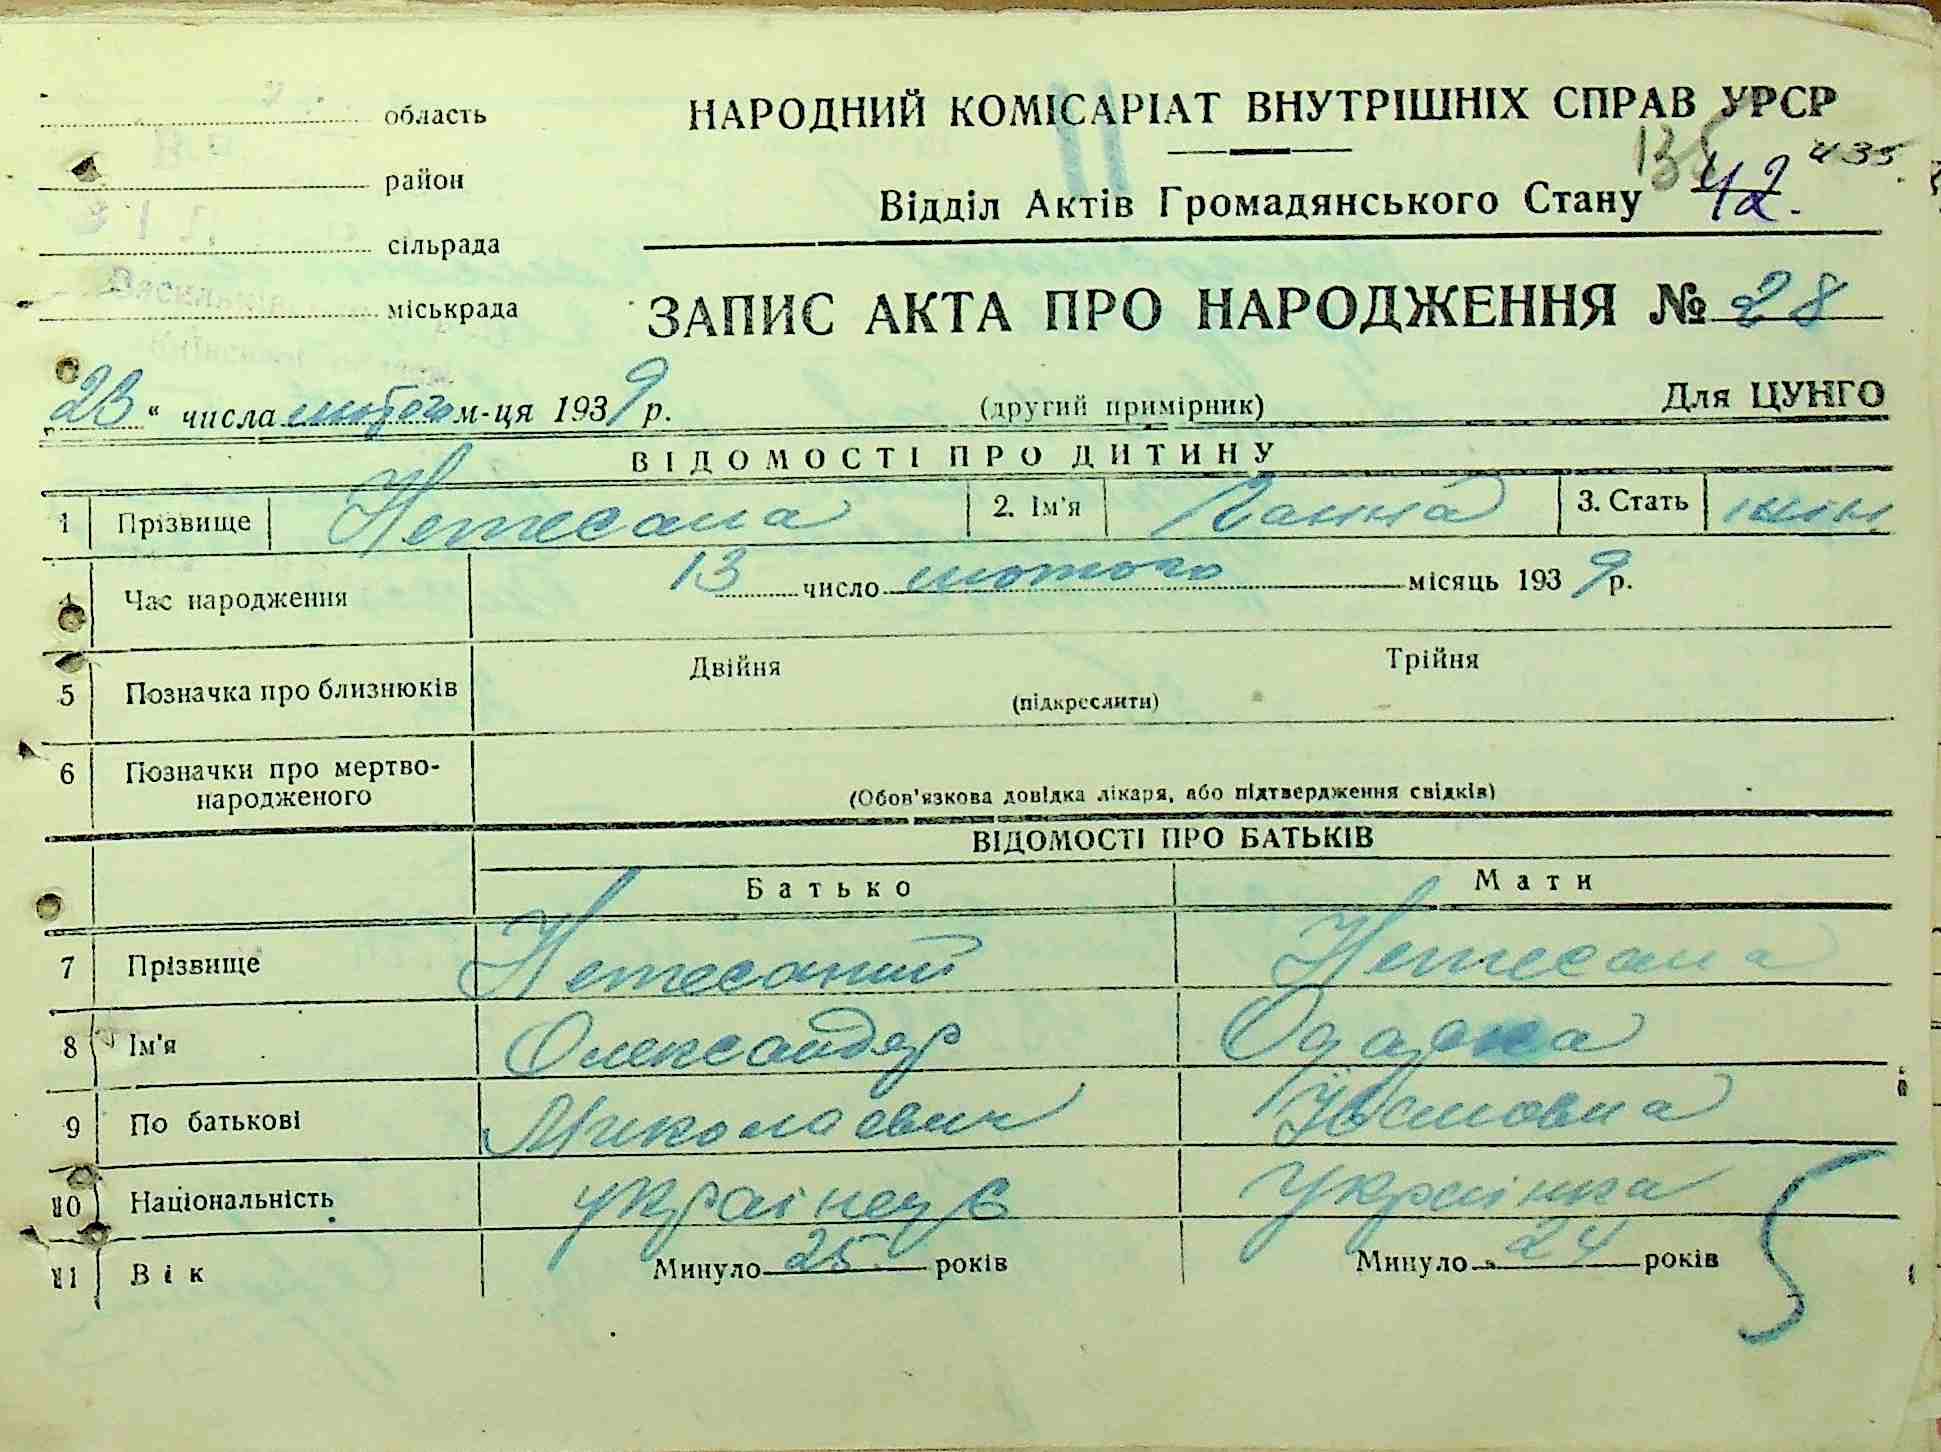 область
район
сільрада
міськрада
НАРОДНИЙ КОМІСАРІАТ ВНУТРІШНІХ СПРАВ УРСР
135 42. 435.
Відділ Актів Громадянського Стану
ЗАПИС АКТА ПРО НАРОДЖЕННЯ № 28
„23“ числа лютого м-ця 1939 р. (другий примірник) Для ЦУНГО
ВІДОМОСТІ ПРО ДИТИНУ
1 Прізвище Нетесана 2. Ім'я Ганна 3. Стать жін
4 Час народження 13 число лютого місяць 1939 р.
5 Позначка про близнюків Двійня Трійня
(підкреслити)
6 Позначки про мертво-
народженого
(Обов'язкова довідка лікаря, або підтвердження свідків)
ВІДОМОСТІ ПРО БАТЬКІВ
Батько Мати
7 Прізвище Нетесаний Нетесана
8 Ім'я Олександр
9 По батькові Миколаєвич Устовна
10 Національність українець Українка
11 Вік Минуло 25 років Минуло 24 років